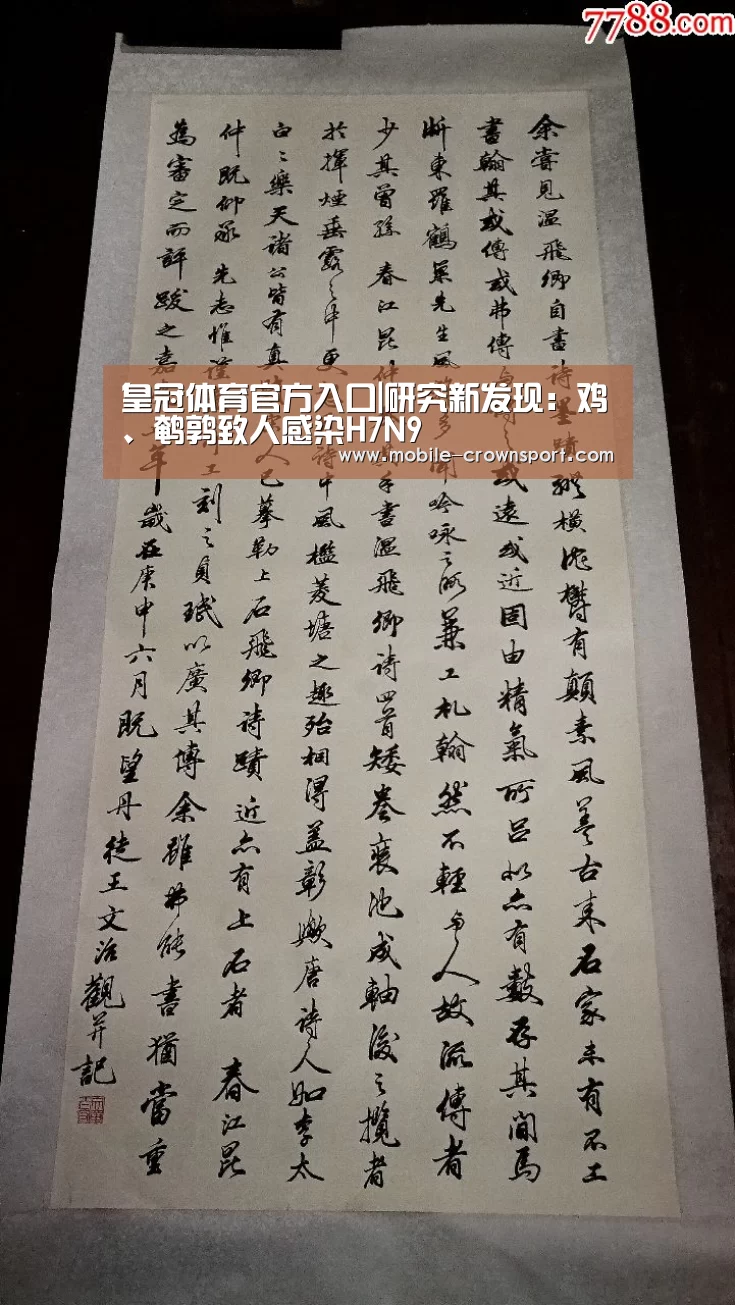 7788.com
余嘗見温飛卿自書詩墨蹟縱横有顛素風葢古来石家未有不工
書翰其或傳或弗傳或遠或近固由精氣所吕亦有數存其間焉
浙東羅鶴巢先生風多聞吟咏之所兼工札翰然不輕与人故流傳者
少其曾孫 春江昆仲手書温飛卿詩四首矮卷裝池成軸後之攬者
於揮煙垂露之中更詩中風檻菱塘之趣殆相得益彰歟唐詩人如李太
白樂天諸公皆有真人已摹勒上石飛卿詩蹟近亦有上石者 春江昆
仲既仰承 先志惟謹工刻之貞珉以廣其博余雖弗能書猶當重
為審定而評跋之嘉年歲在庚申六月既望丹徒王文治觀并記
皇冠体育官方入口|研究新发现：鸡
、鹌鹑致人感染H7N9
www.mobile-crownsport.com